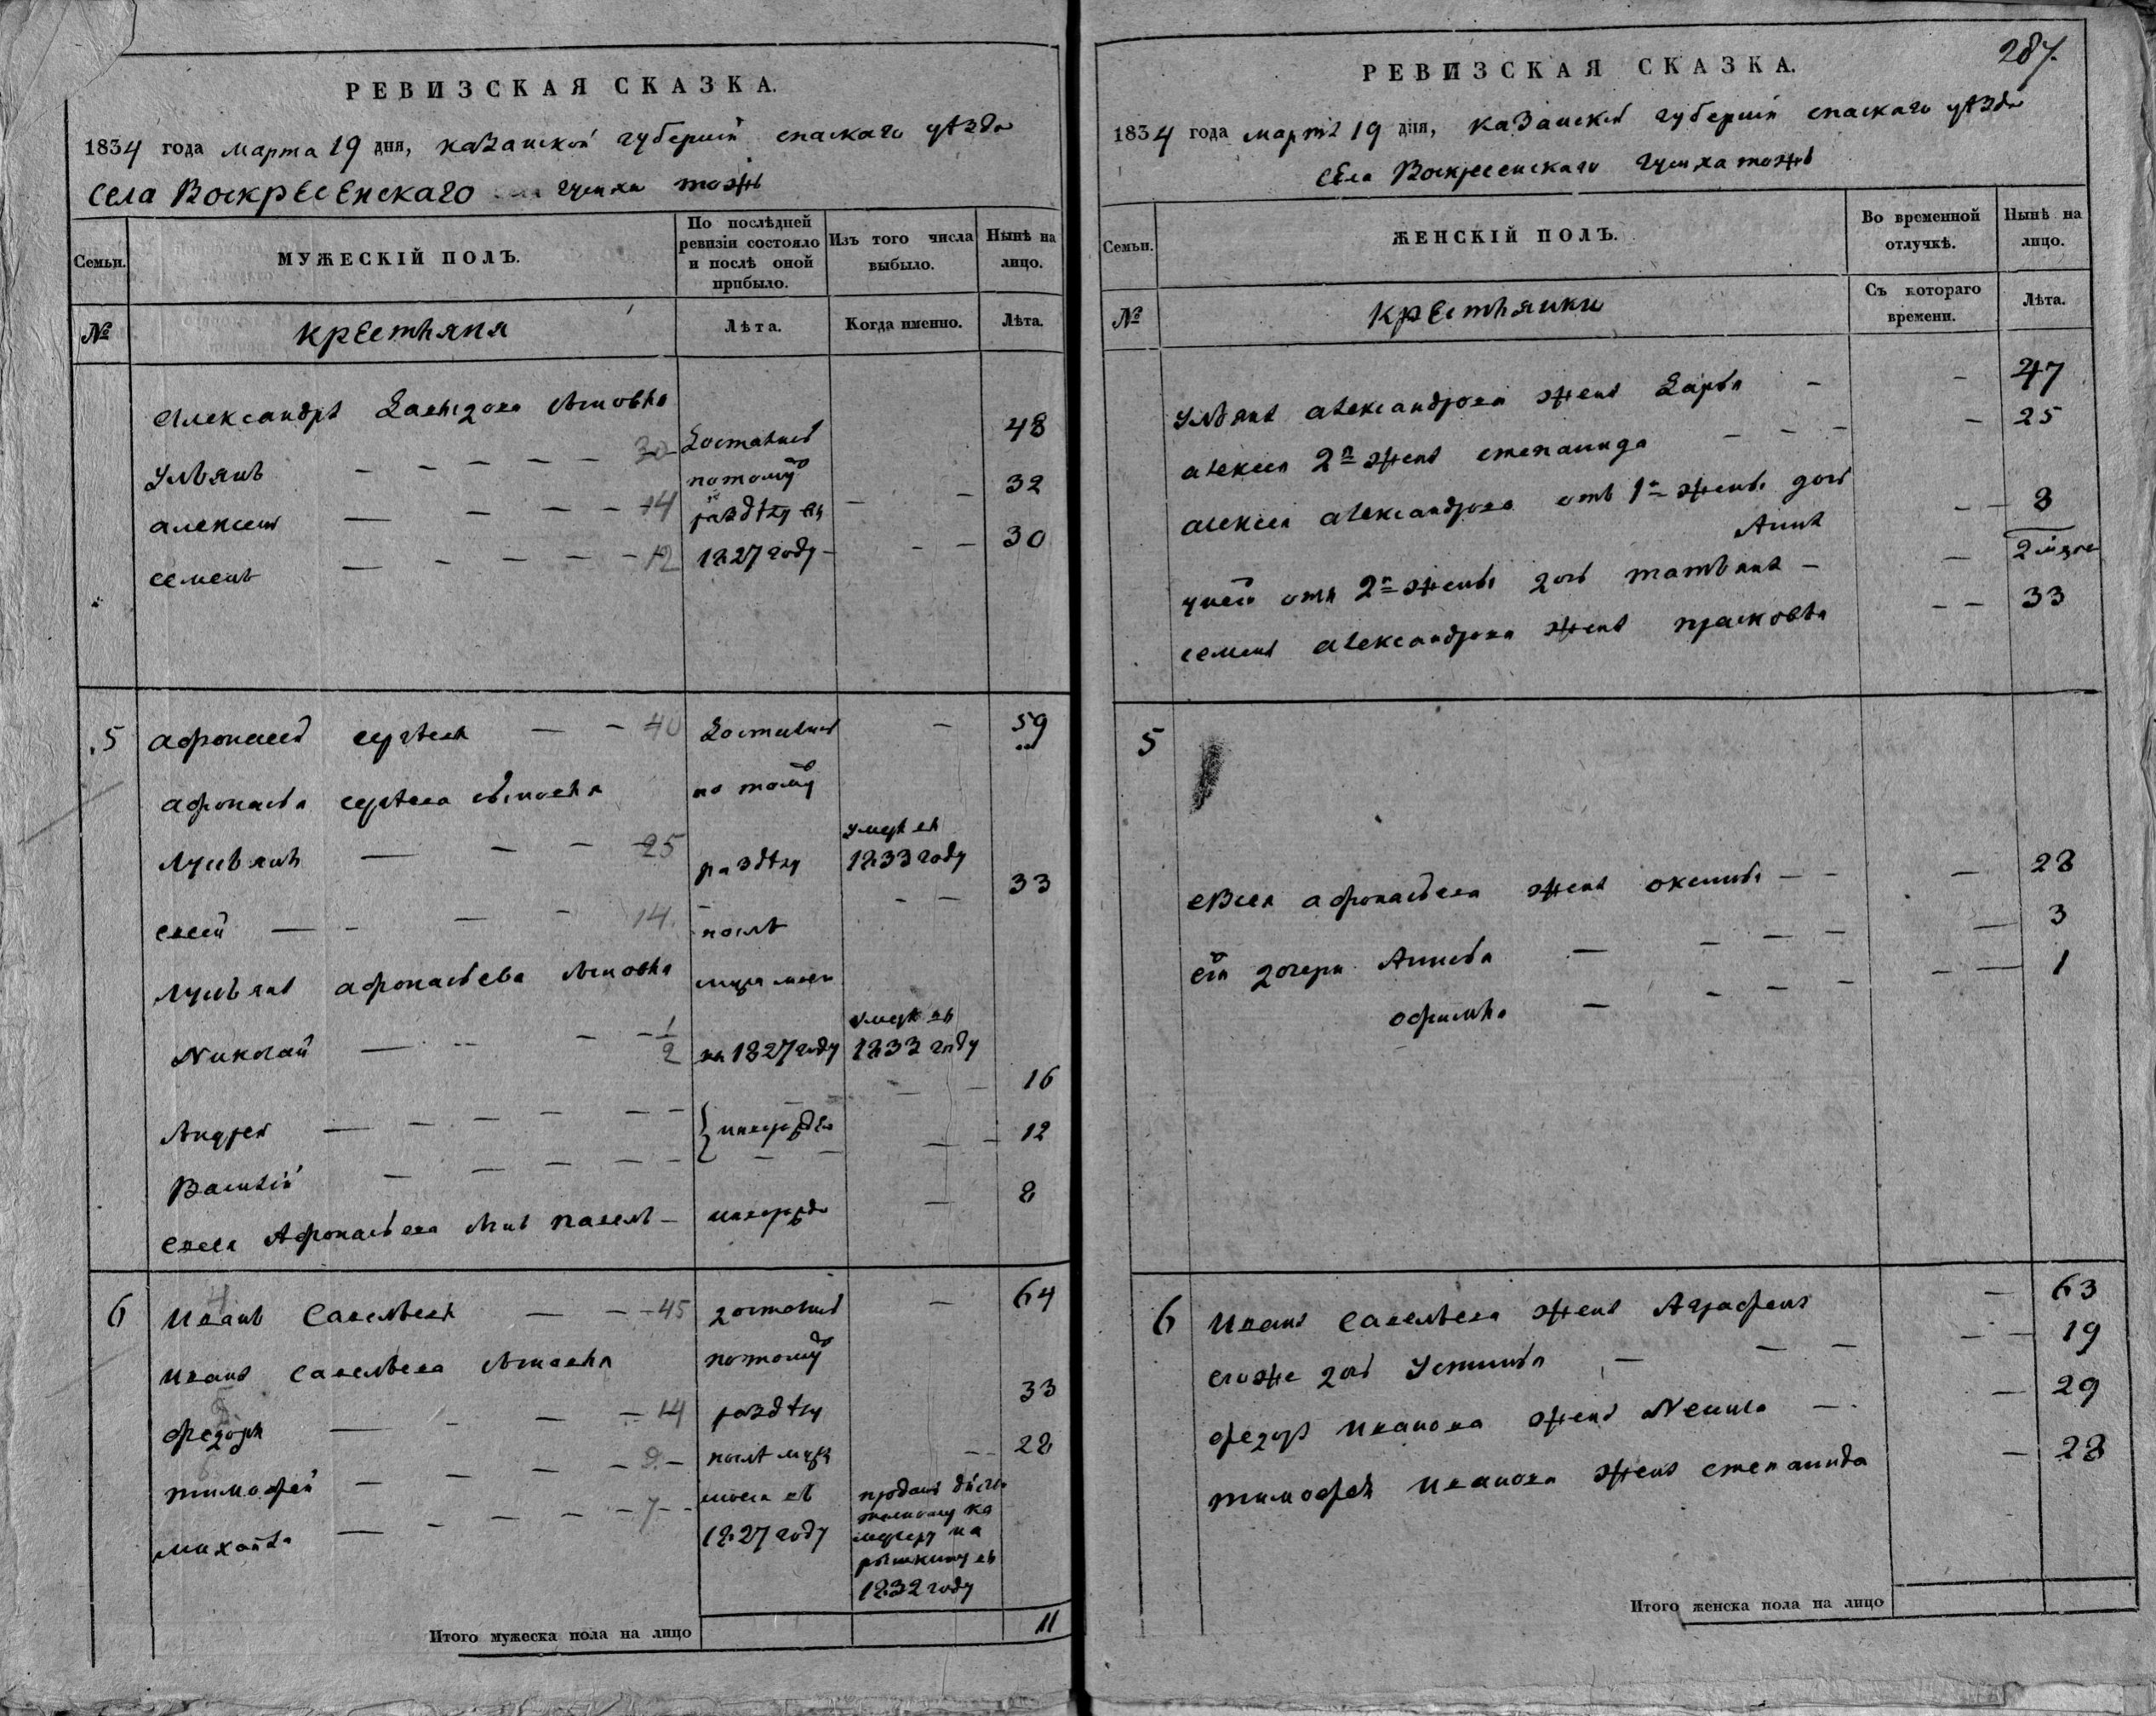 РЕВИЗСКАЯ СКАЗКА.
1834 года марта 19 дня, казанской губернїи спаскаго уѣзда
села Воскресенскаго тожъ
Семьи.
МУЖЕСКІЙ ПОЛЪ.
По послѣдней ревизіи состояло и послѣ оной прибыло.
Изъ того числа выбыло.
Нынѣ на лицо.
№
крестьяня
Лѣта.
Когда именно.
Лѣта.
Александръ сыновья
Ульянъ 30 48
алексей 14 потому 32
семенъ 12 раздѣлу въ 1827 году 30
5 афонасей сергѣевъ 40 59
афонасья сергѣева сыновья по тому
лукьянъ 25 раздѣлу умеръ въ 1833 году
евсей 14 послѣ 33
лукьяна афонасьева сыновья
Николай 1/2 въ 1827 году умеръ въ 1833 году
Андрей 16
Василій 12
евсея Афонасьева сынъ павелъ 8
6 иванъ савельевъ 45 достались 64
ивана савельева сыновья потому
федоръ 14 раздѣлу 33
тимофей 9 послѣ 28
михаила 7 въ 1827 году проданъ въ 1832 году
Итого мужеска пола на лицо 11
287.
РЕВИЗСКАЯ СКАЗКА.
1834 года марта 19 дня, казанской губернїи спаскаго уѣзда
села Воскресенскаго тожъ
Семьи.
ЖЕНСКІЙ ПОЛЪ.
Во временной отлучкѣ.
Нынѣ на лицо.
№
крестьянки
Съ котораго времени.
Лѣта.
Ульяна александрова жена Дарья 47
алексея 2я жена степанида 25
алексея александрова отъ 1й жены дочь Анна 8
у него отъ 2й жены дочь татьяна 2
семена александрова жена прасковья 33
5
евсея афонасьева жена оксинья 28
его дочери Анисья 3
офимья 1
6 ивана савельева жена Аграфена 63
его же дочь Устинья 19
федора иванова жена Ненила 29
тимофея иванова жена степанида 28
Итого женска пола на лицо